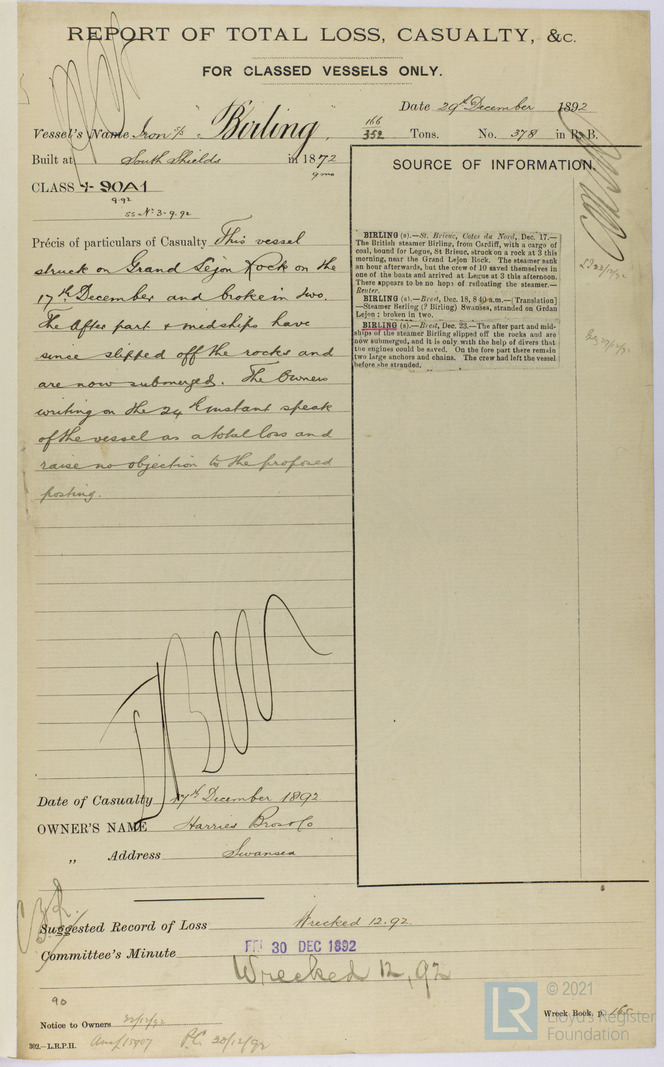 REPORT OF TOTAL LOSS, CASUALTY, &c.
FOR CLASSED VESSELS ONLY.
Date 29th December 1892
Vessel's Name Iron "Birling" 166/352 Tons. No. 378 in R. B.
Built at South Shields in 1872
9 mo
CLASS + 90A1
9.92
ss No 3-9.92
SOURCE OF INFORMATION.
Précis of particulars of Casualty This vessel
struck on Grand Lejon Rock on the
17th December and broke in two.
The After part & midships have
since slipped off the rocks and
are now submerged. The Owners
writing on the 24th instant speak
of the vessel as a total loss and
raise no objection to the proposed
posting.
BIRLING (s).—St. Brieuc, Cotes du Nord, Dec. 17.—
The British steamer Birling, from Cardiff, with a cargo of
coal, bound for Legue, St Brieuc, struck on a rock at 3 this
morning, near the Grand Lejon Rock. The steamer sank
an hour afterwards, but the crew of 10 saved themselves in
one of the boats and arrived at Legue at 3 this afternoon.
There appears to be no hope of refloating the steamer.—
Reuter.
BIRLING (s).—Brest, Dec. 18, 8 40 a.m.—[Translation]
—Steamer Berling (? Birling) Swansea, stranded on Grdan
Lejon; broken in two.
BIRLING (s).—Brest, Dec. 23.—The after part and mid-
ships of the steamer Birling slipped off the rocks and are
now submerged, and it is only with the help of divers that
the engines could be saved. On the fore part there remain
two large anchors and chains. The crew had left the vessel
before she stranded.
Date of Casualty 17th December 1892
OWNER'S NAME Harries Bros & Co
„ Address Swansea
Suggested Record of Loss Wrecked 12.92.
Committee's Minute FRI 30 DEC 1892
Wrecked 12,92
90
Notice to Owners 22/12/92
Wreck Book, p. 165
302.—L.R.P.H.
LR
© 2021
Lloyd's Register
Foundation